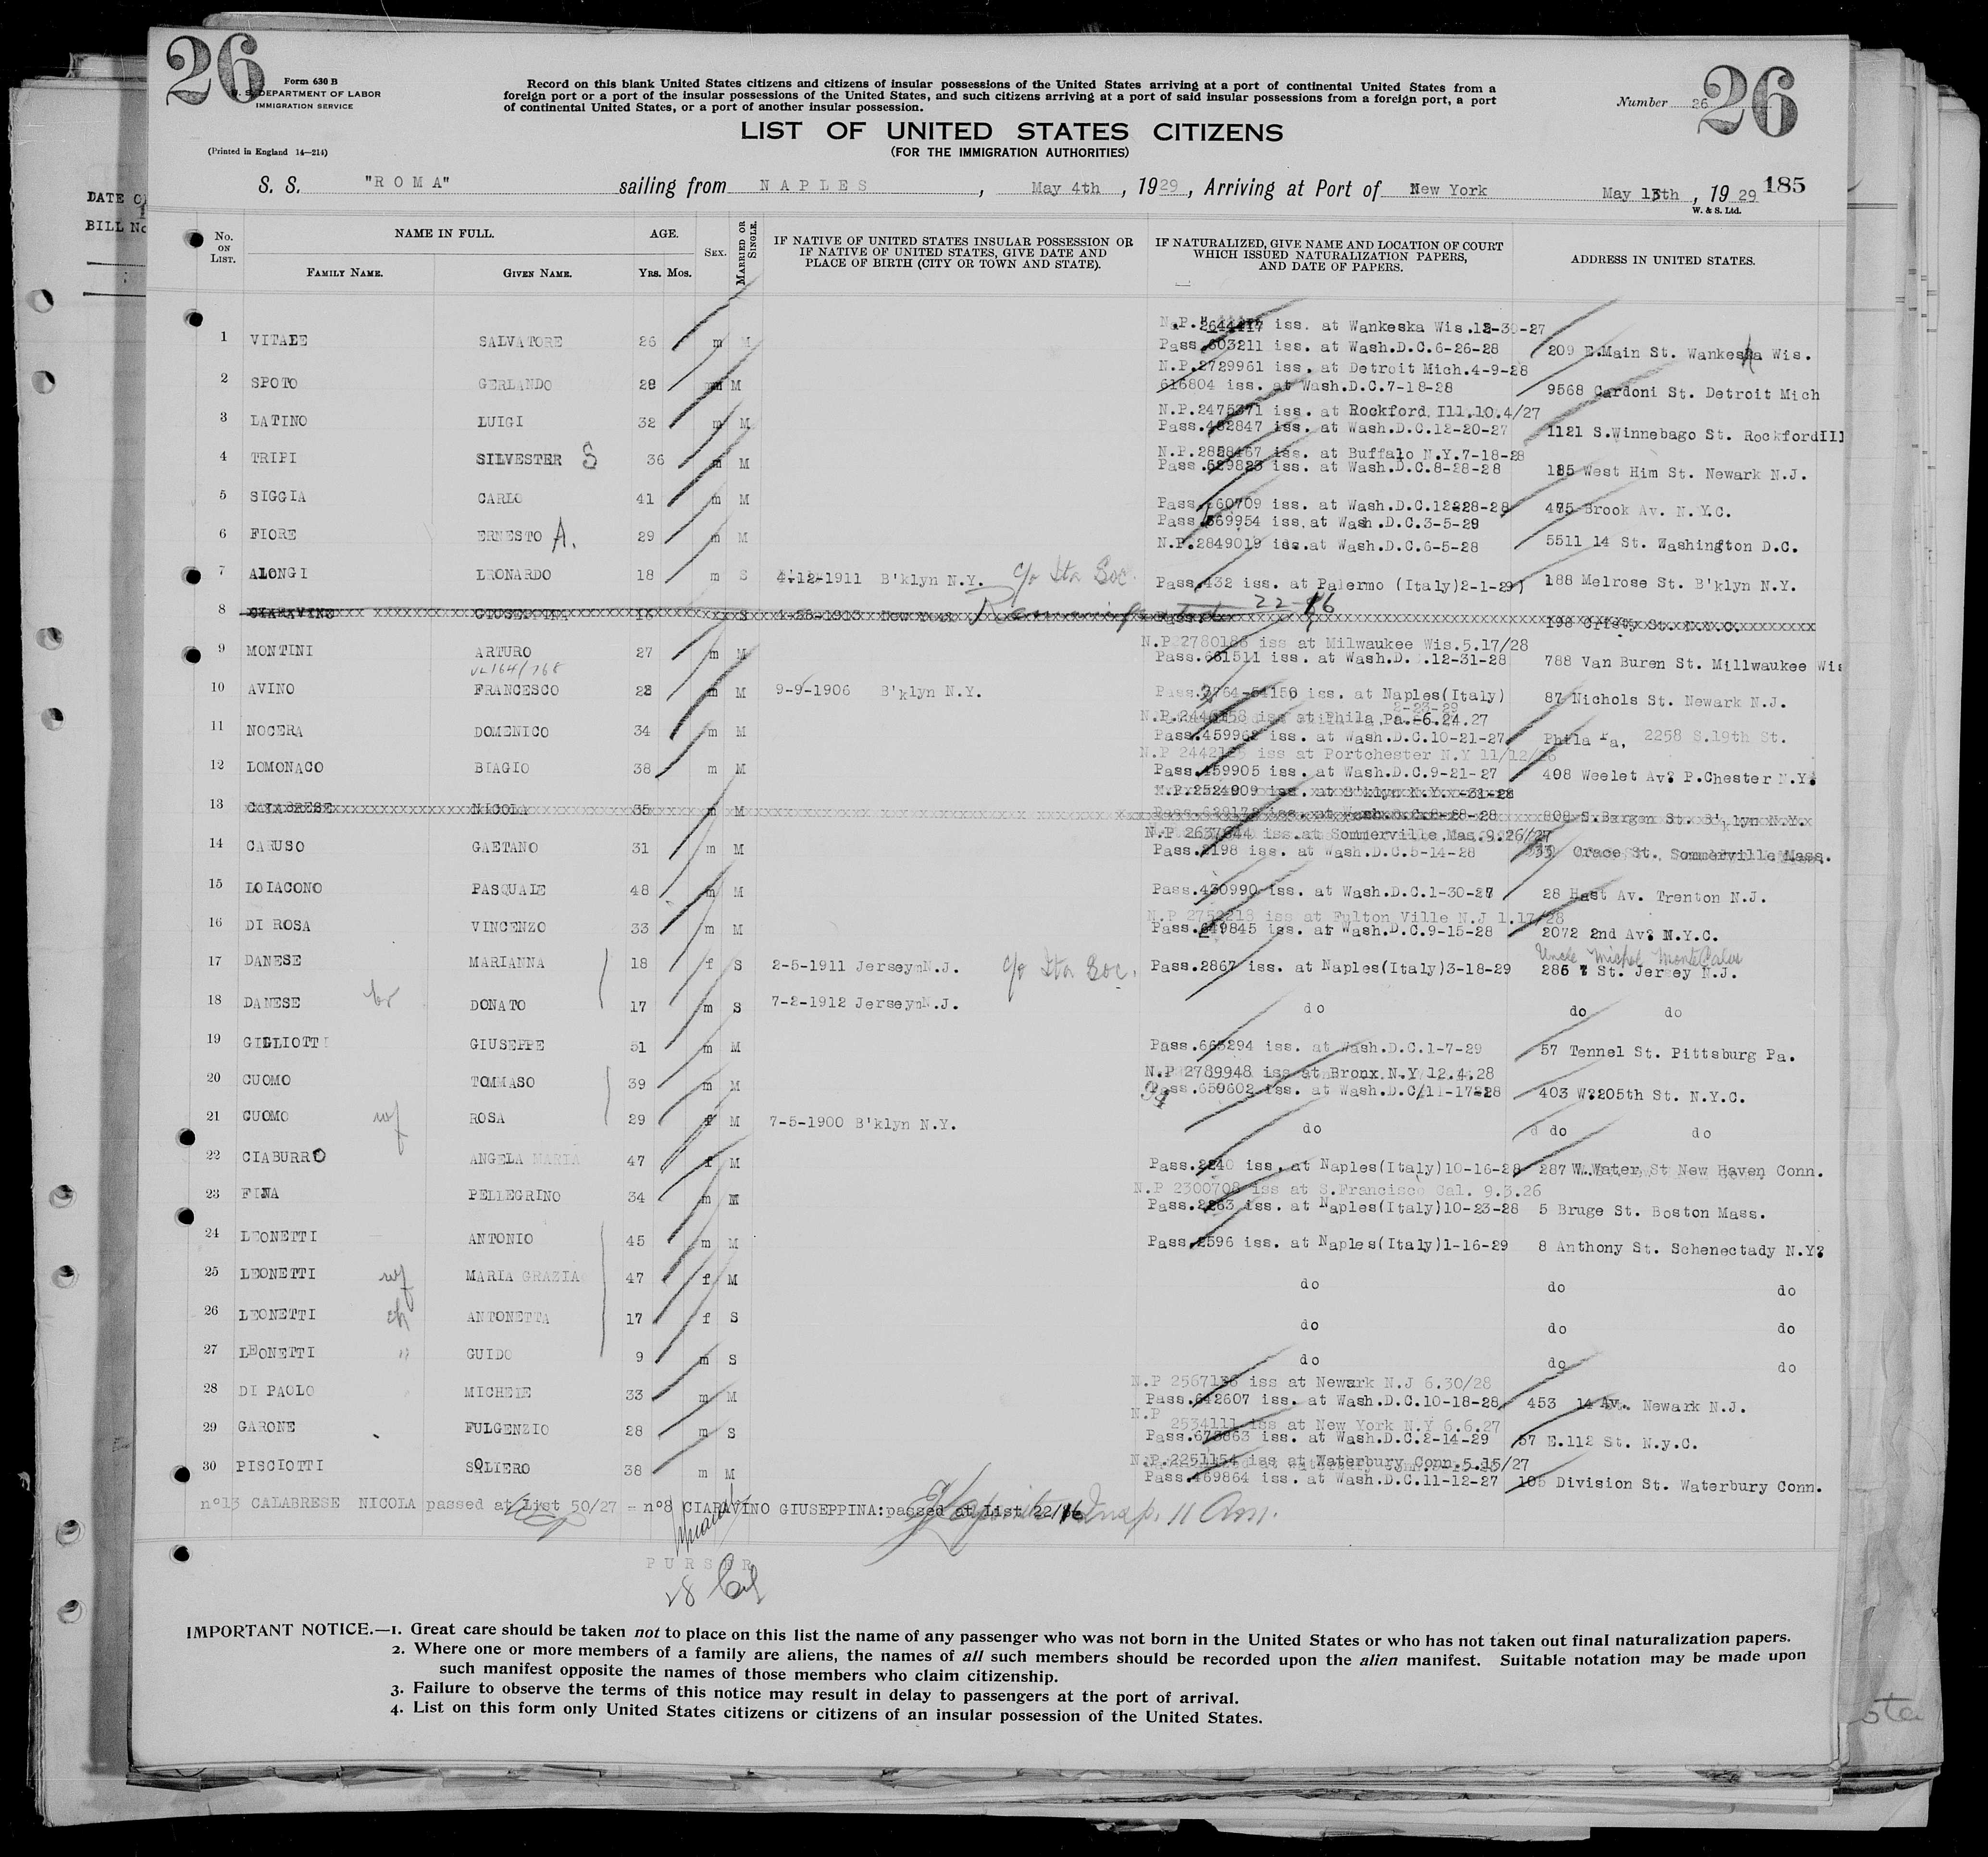 26
26
Form 630 B
U. S. DEPARTMENT OF LABOR
IMMIGRATION SERVICE
Record on this blank United States citizens and citizens of insular possessions of the United States arriving at a port of continental United States from a
foreign port or a port of the insular possessions of the United States, and such citizens arriving at a port of said insular possessions from a foreign port, a port
of continental United States, or a port of another insular possession.
Number 26
LIST OF UNITED STATES CITIZENS
(FOR THE IMMIGRATION AUTHORITIES)
(Printed in England 14—214)
S. S. "ROMA" sailing from NAPLES, May 4th, 1929, Arriving at Port of New York May 13th, 1929 185
W. & S. Ltd.
DATE O
BILL No
No. ON LIST.
NAME IN FULL.
FAMILY NAME.
GIVEN NAME.
AGE.
Yrs. Mos.
SEX.
MARRIED OR SINGLE.
IF NATIVE OF UNITED STATES INSULAR POSSESSION OR
IF NATIVE OF UNITED STATES, GIVE DATE AND
PLACE OF BIRTH (CITY OR TOWN AND STATE).
IF NATURALIZED, GIVE NAME AND LOCATION OF COURT
WHICH ISSUED NATURALIZATION PAPERS,
AND DATE OF PAPERS.
ADDRESS IN UNITED STATES.
N.P. 2644417 iss. at Wankeska Wis.12-30-27
1 VITALE SALVATORE 26 m M Pass.603211 iss. at Wash.D.C.6-26-28 209 E.Main St. Wankesha Wis.
N.P.2729961 iss. at Detroit Mich.4-9-28
2 SPOTO GERLANDO 28 m M 616804 iss. at Wash.D.C.7-18-28 9568 Cardoni St. Detroit Mich
N.P.2475371 iss. at Rockford Ill.10.4/27
3 LATINO LUIGI 32 m M Pass.482847 iss. at Wash.D.C.12-20-27 1121 S.Winnebago St. RockfordIll
N.P.2828467 iss. at Buffalo N.Y.7-18-28
4 TRIPI SILVESTER S 36 m M Pass.629823 iss. at Wash.D.C.8-28-28 185 West Him St. Newark N.J.
5 SIGGIA CARLO 41 m M Pass.660709 iss. at Wash.D.C.12-28-28 475 Brook Av. N.Y.C.
Pass.669954 iss.at Wash.D.C.3-5-29
6 FIORE ERNESTO A. 29 m M N.P.2849019 iss.at Wash.D.C.6-5-28 5511 14 St. Washington D.C.
7 ALONGI LEONARDO 18 m S 4-12-1911 B'klyn N.Y. c/o Ita Soc. Pass.432 iss. at Palermo (Italy)2-1-29) 188 Melrose St. B'klyn N.Y.
8 CIARAVINO GIUSEPPINA 16 S 4-28-1913 22-16 198 Cristy St. N.Y.C.
N.P.2780186 iss at Milwaukee Wis.5.17/28
9 MONTINI ARTURO 27 m M Pass.661511 iss. at Wash.D. .12-31-28 788 Van Buren St. Millwaukee Wis
VL164/768
10 AVINO FRANCESCO 28 m M 9-9-1906 B'klyn N.Y. Pass.2764-64150 iss. at Naples(Italy) 87 Nichols St. Newark N.J.
2-23-29
N.P.2446158 iss at Phila Pa.-6.24.27
11 NOCERA DOMENICO 34 m M Pass.459962 iss. at Wash.D.C.10-21-27 Phila Pa, 2258 S.19th St.
N.P 2442 iss at Portchester N.Y 11/12/26
12 LOMONACO BIAGIO 38 m M Pass.459905 iss. at Wash.D.C.9-21-27 408 Weelet Av? P.Chester N.Y.
N.P.2524909 iss. at B'klyn N.Y. -31-28
13 CALABRESE NICOLA 35 m M Pass.629172 iss.at Wash.D.C.8-28-28 808 S.Bergen St. B'klyn N.Y.
N.P 2637644 iss.at Sommerville Mas.9.26/27
14 CARUSO GAETANO 31 m M Pass.2198 iss. at Wash.D.C.5-14-28 33 Grace St. Sommerville Mass.
15 LOIACONO PASQUALE 48 m M Pass.430990 iss. at Wash.D.C.1-30-27 28 Hast Av. Trenton N.J.
N.P 2752218 iss at Fulton Ville N.J 1.17/28
16 DI ROSA VINCENZO 33 m M Pass.649845 iss. at Wash.D.C.9-15-28 2072 2nd Av? N.Y.C.
Uncle Michel MonteCalvo
17 DANESE MARIANNA 18 f S 2-5-1911 Jersey N.J. c/o Ita Soc. Pass.2867 iss. at Naples(Italy)3-18-29 286 7 St. Jersey N.J.
18 DANESE br DONATO 17 m S 7-2-1912 Jersey N.J. do do do
19 GIGLIOTTI GIUSEPPE 51 m M Pass.665294 iss. at Wash.D.C.1-7-29 57 Tennel St. Pittsburg Pa.
N.P 2789948 iss at Bronx N.Y 12.4.28
20 CUOMO TOMMASO 39 m M Pass.650602 iss. at Wash.D.C/11-17-28 403 W?205th St. N.Y.C.
94
21 CUOMO wf ROSA 29 f M 7-5-1900 B'klyn N.Y. do do do
22 CIABURRO ANGELA MARIA 47 f M Pass.2240 iss. at Naples(Italy)10-16-28 287 W.Water St New Haven Conn.
N.P 2300708 iss at S.Francisco Cal. 9.3.26
23 FINA PELLEGRINO 34 m M Pass.2263 iss. at Naples(Italy)10-23-28 5 Bruge St. Boston Mass.
24 LEONETTI ANTONIO 45 m M Pass.2596 iss. at Naples(Italy)1-16-29 8 Anthony St. Schenectady N.Y?
25 LEONETTI wf MARIA GRAZIA 47 f M do do do
26 LEONETTI ch ANTONETTA 17 f S do do do
27 LEONETTI " GUIDO 9 m S do do do
N.P 2567136 iss at Newark N.J 6.30/28
28 DI PAOLO MICHELE 33 m M Pass.642607 iss. at Wash.D.C.10-18-28 453 14 Av. Newark N.J.
N.P 2534111 iss at New York N.Y 6.6.27
29 GARONE FULGENZIO 28 m S Pass.678863 iss. at Wash.D.C.2-14-29 57 E.112 St. N.y.C.
N.P.2251154 iss at Waterbury Conn.5.15/27
30 PISCIOTTI SOLIERO 38 m M Pass.469864 iss. at Wash.D.C.11-12-27 105 Division St. Waterbury Conn.
n°13 CALABRESE NICOLA passed at List 50/27 - n°8 CIARAVINO GIUSEPPINA:passed at List 22/16 Insp. 11 Am.
PURSER
28
IMPORTANT NOTICE.—1. Great care should be taken not to place on this list the name of any passenger who was not born in the United States or who has not taken out final naturalization papers.
2. Where one or more members of a family are aliens, the names of all such members should be recorded upon the alien manifest. Suitable notation may be made upon
such manifest opposite the names of those members who claim citizenship.
3. Failure to observe the terms of this notice may result in delay to passengers at the port of arrival.
4. List on this form only United States citizens or citizens of an insular possession of the United States.